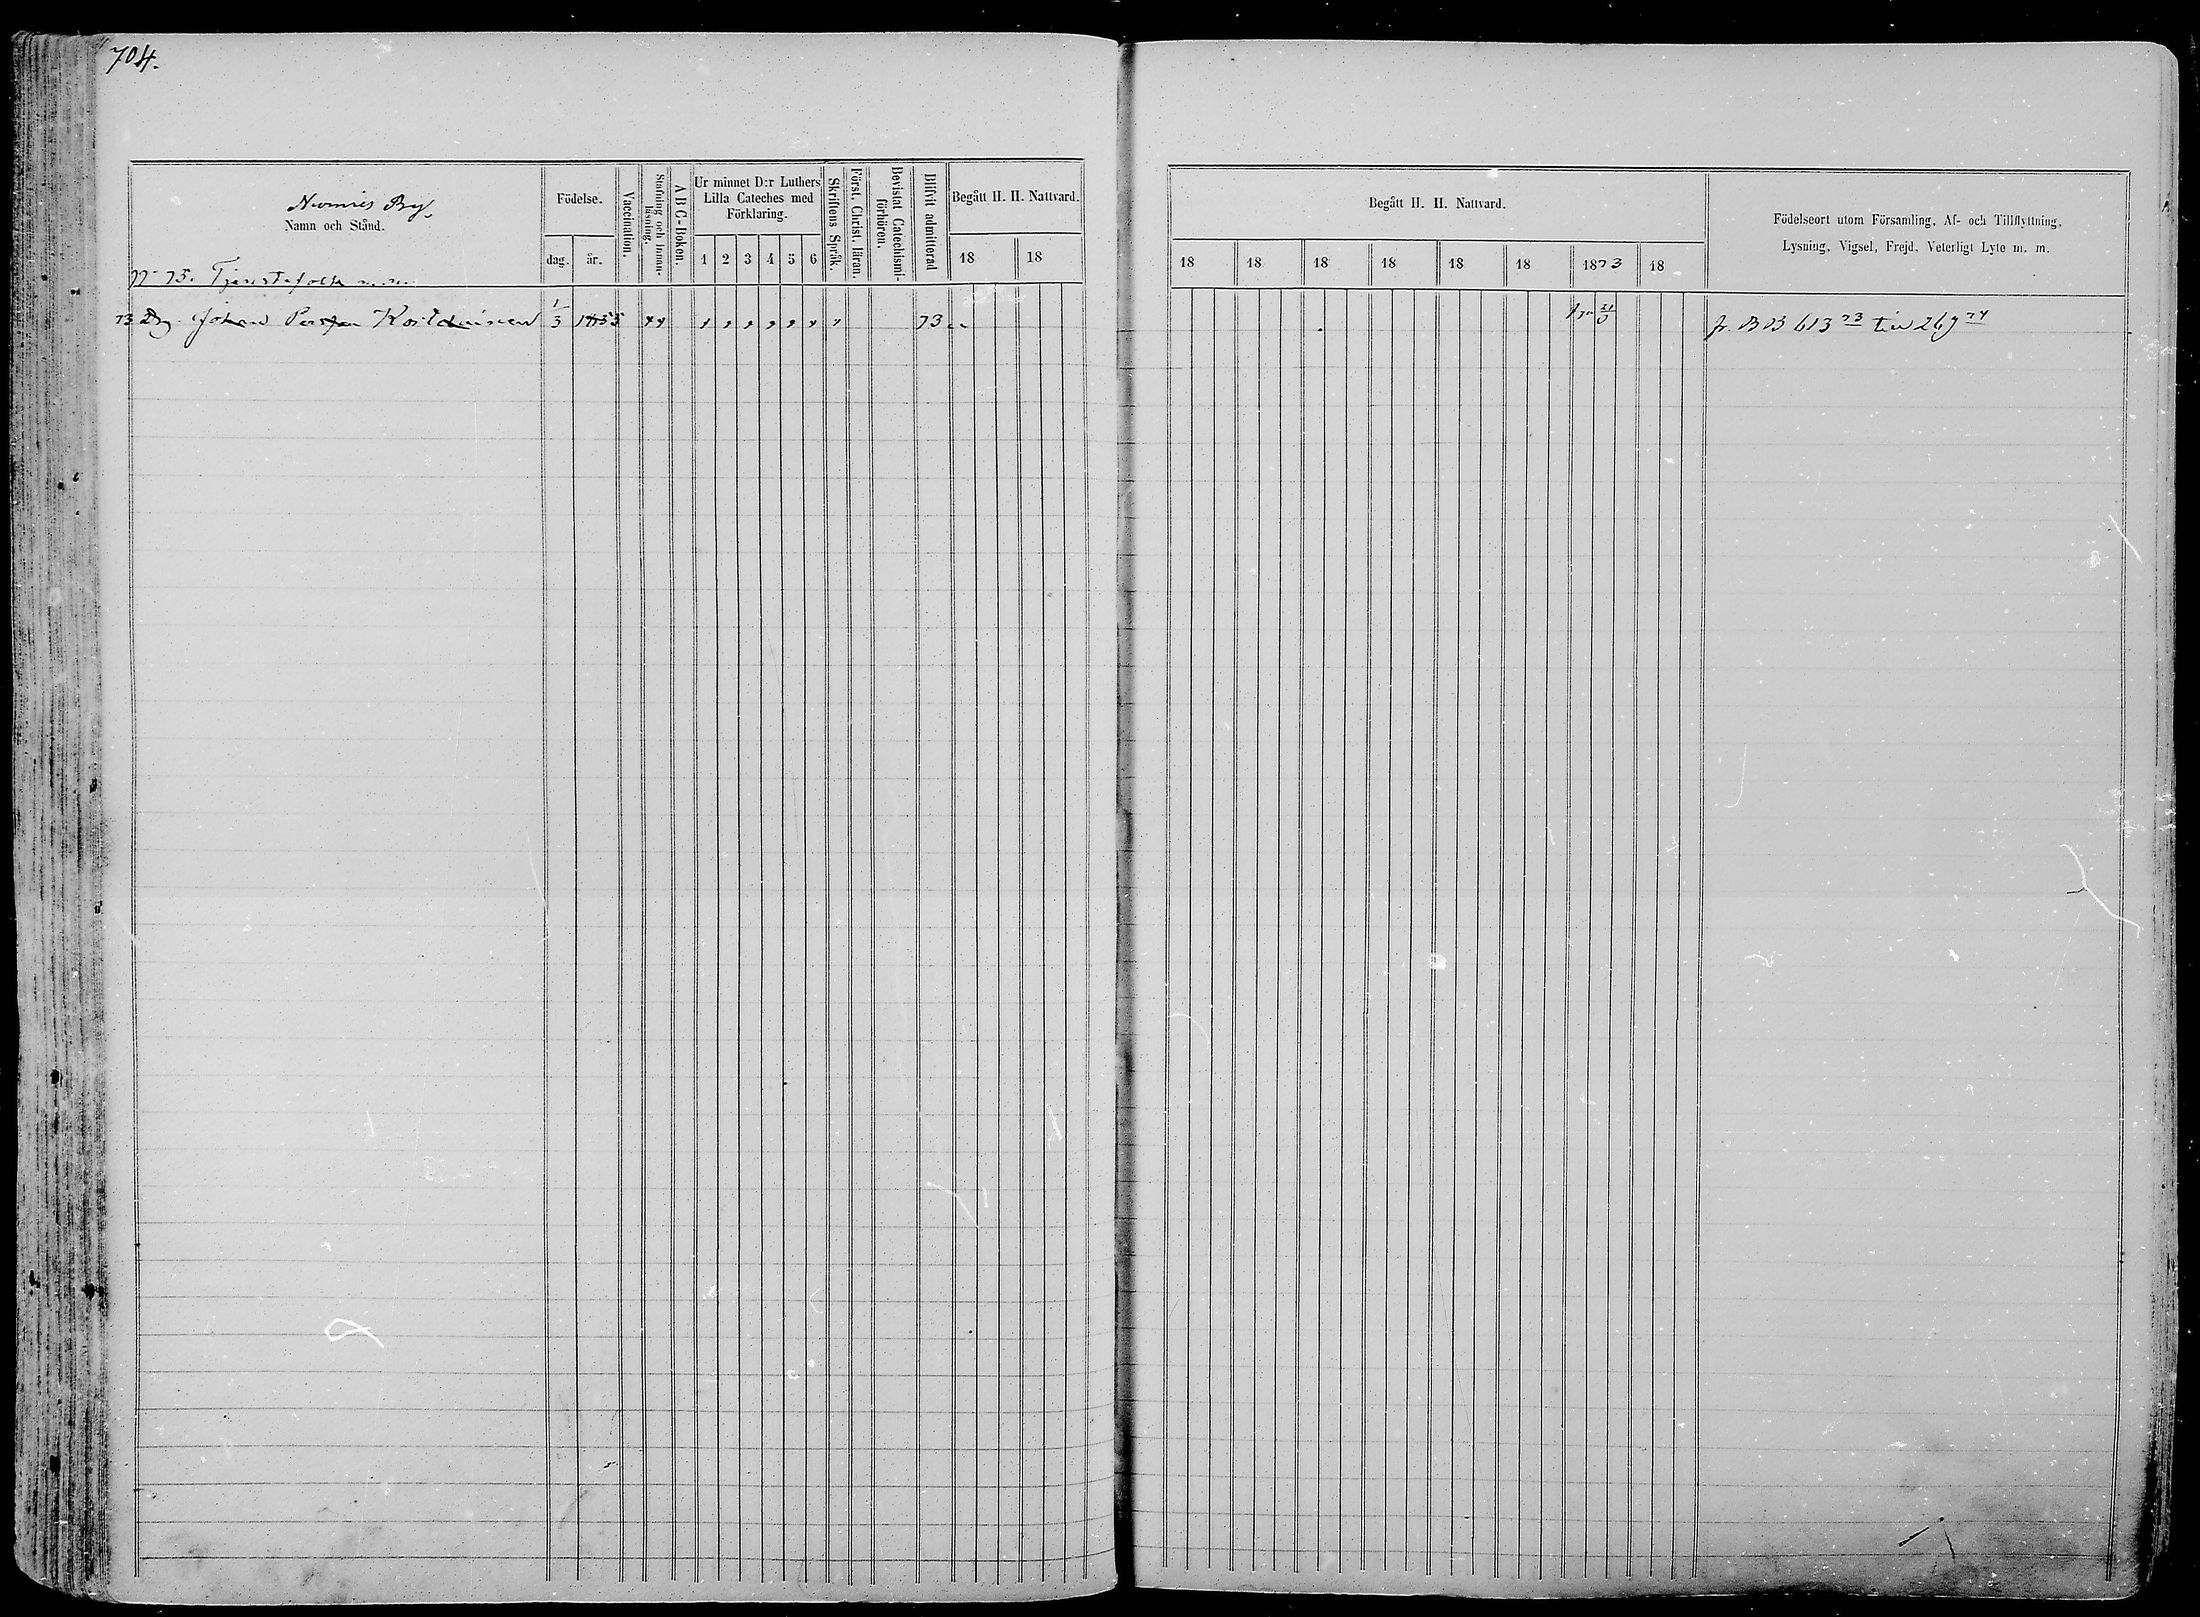 704.
Begått H. H. Nattvard.
Födelseort utom Församling, Af- och Tillflyttning,
Lysning, Vigsel, Frejd, Veterligt Lyte m. m.
18 18 18 18 18 18 1873 18
Nurmis By.
Namn och Stånd.
Födelse.
dag. år.
Vaccination.
Stafning och Innan-
läsning.
A B C-Boken.
Ur minnet D:r Luthers
Lilla Cateches med
Förklaring.
1 2 3 4 5 6
Skriftens Språk.
Först. Christ. läran.
Bevistat Catechismi-
förhören.
Blifvit admitterad
Begått H. H. Nattvard.
18 18
Tjenstefolk m.m.
73 Dg. Johan Persson 1/3 1855 73
fr. BB 613 73 till 269 74